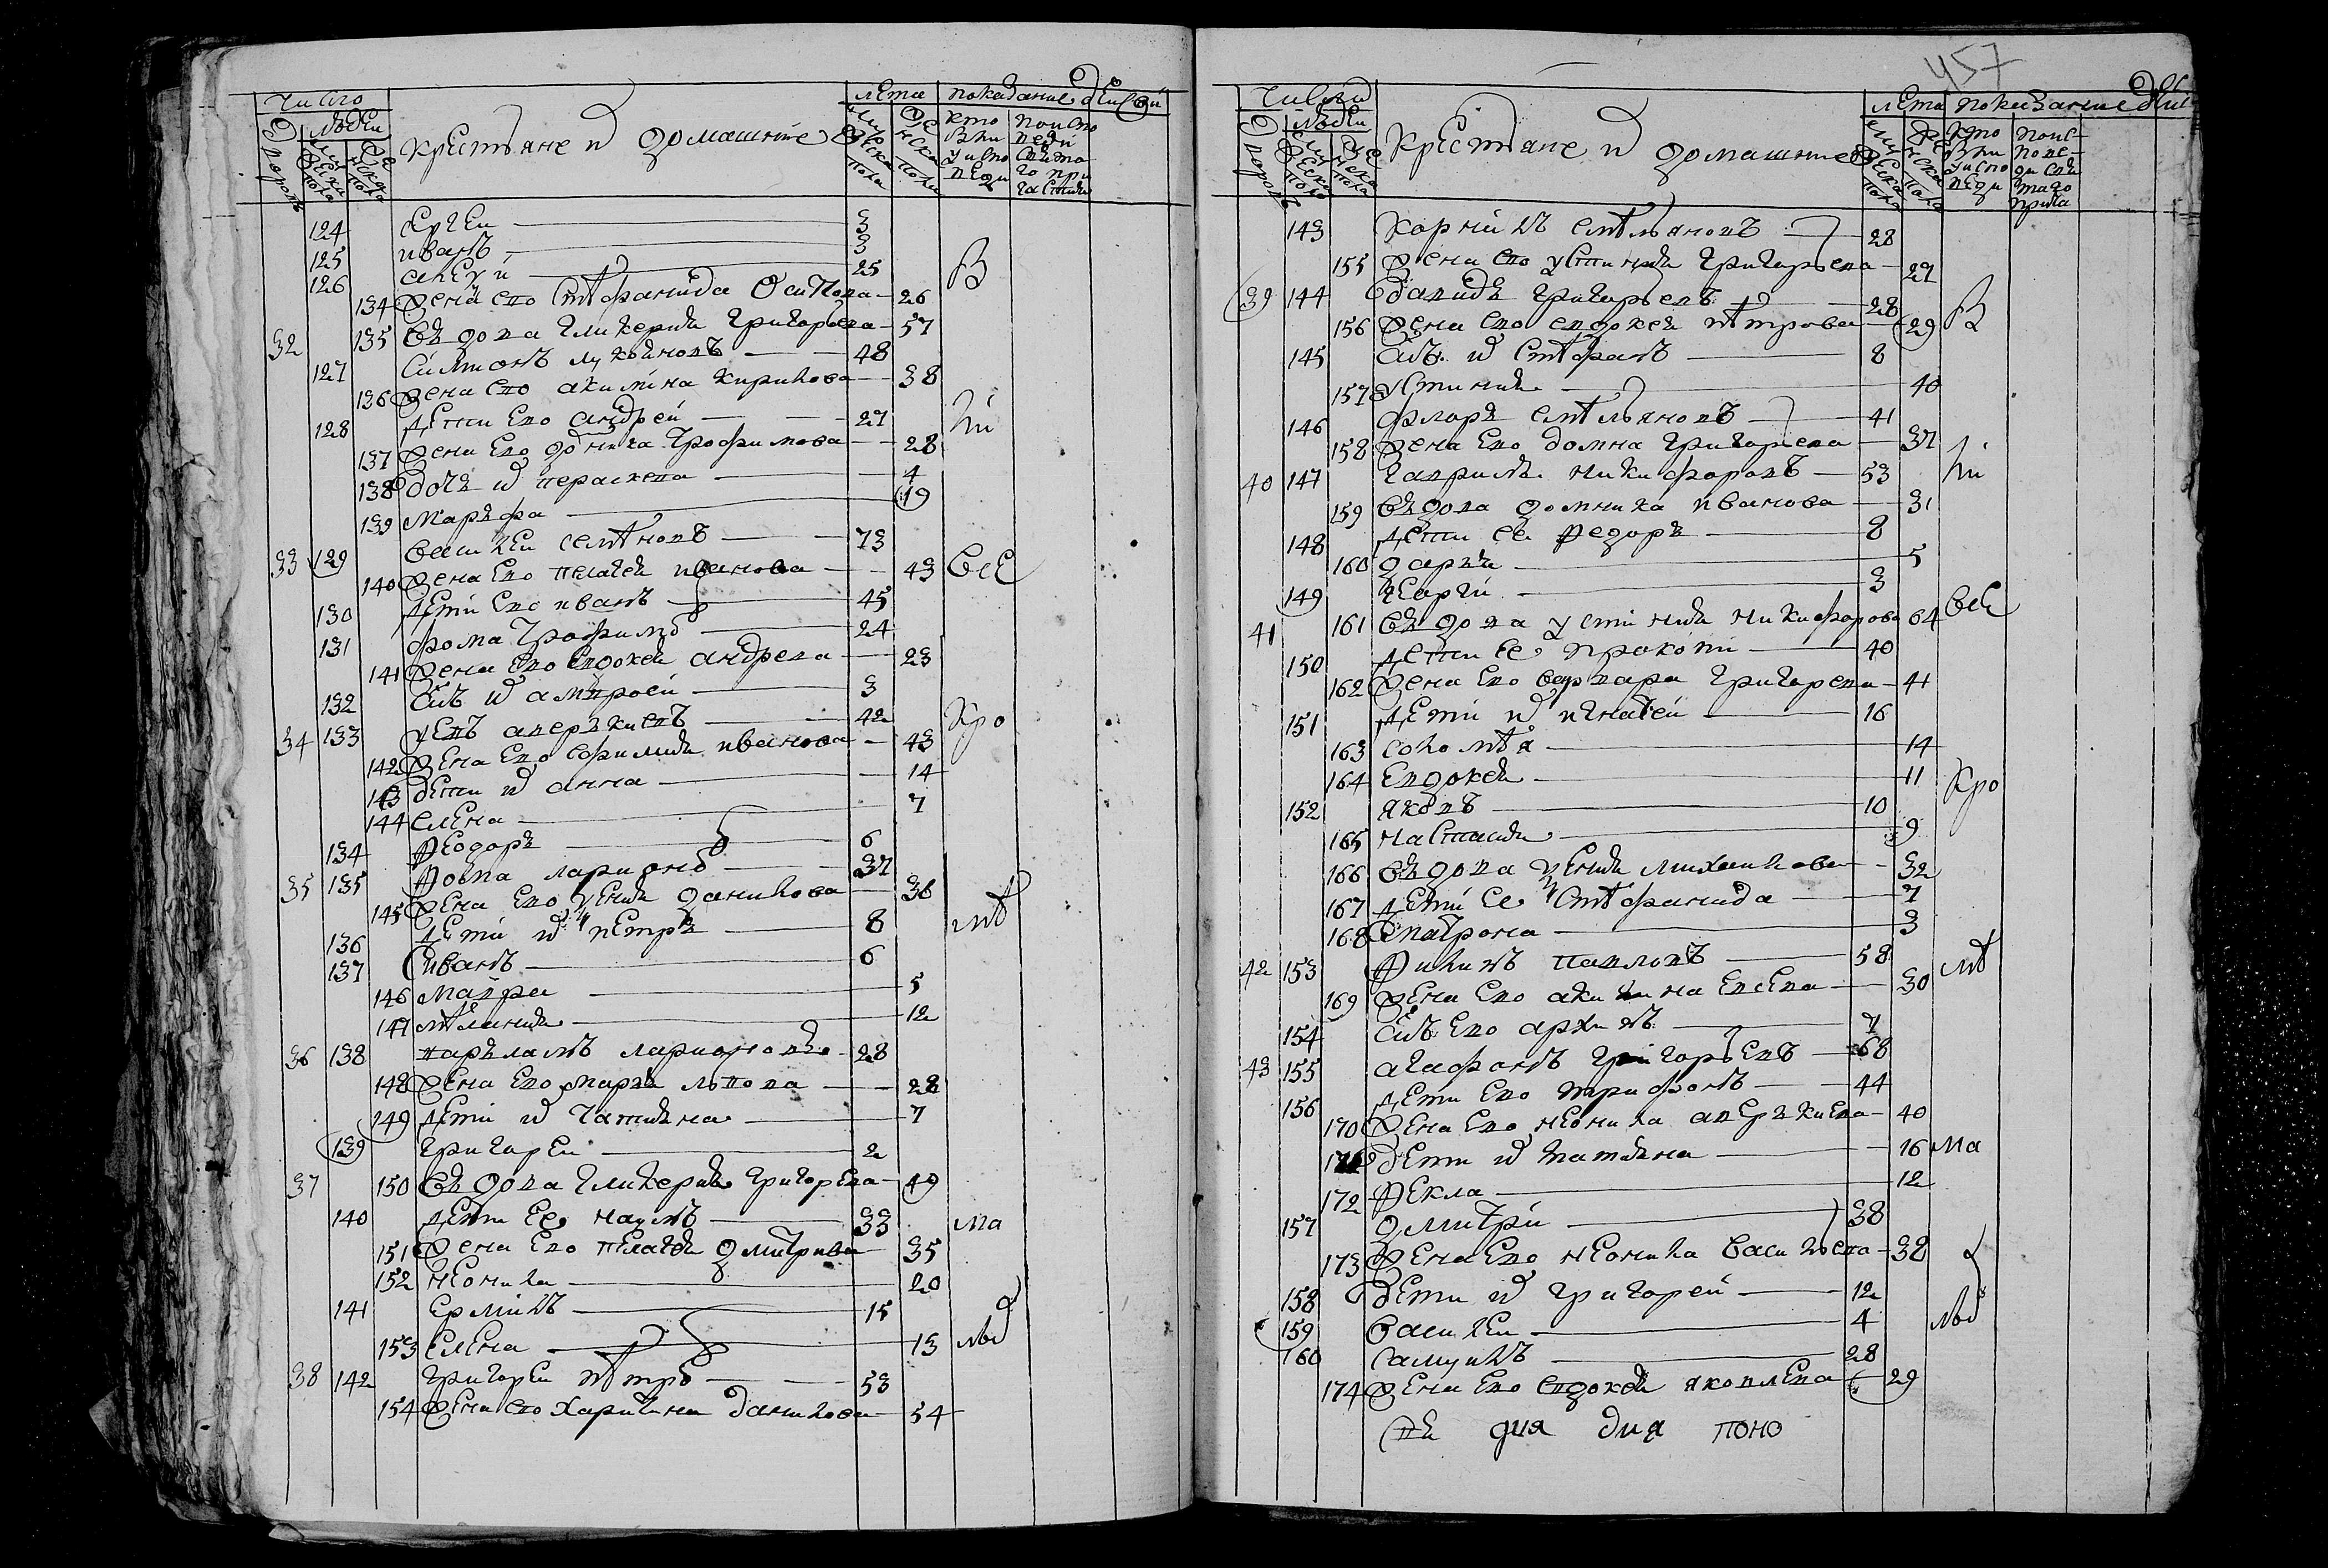 Число
людей
Крестьяне и домашние
лета
показание действ
124 Сергей 3
125 Иванъ 3
126 Сысуй 25
134 жена ево Стефанида Осипова 26
32 135 вдова Гликерия Григорьева 57
127 Симионъ Лукяновъ 48
136 жена ево Акилина Кирилова 38
128 дети ево Андрей 27
137 жена ево Домника Трофимова 28
138 дочь их Параскева 4
139 Марфа 19
33 129 Василей Семеновъ 73
140 жена ево Пелагея Иванова 43 все
130 дети ево Иванъ 45
131 Фома Трофимо 24
141 жена ево Евдокея Андрева 23
132 сынъ их Амвросей 3
34 133 Аверкиевъ 42
142 жена ево Ефимия Иванова 43
143 дети их Анна 14
144 Елена 7
134 Феодоръ 6
35 135 Фома Ларионо 37
145 жена ево Ксения Данилова 36
136 дети их Петръ 8
137 Иванъ 6
146 Мавра 5
147 Мелания 12
36 138 Варламъ Ларионовъ 28
148 жена ево Марья Лвова 28
149 дети их Татияна 7
139 Григорей 2
37 150 вдова Гликерия Григорева 49
140 дети ее Наумъ 33 ма
151 жена ево Пелагея Дмитрива 35
152 Неонила 20
141 Ермилъ 15
153 Елена 13
38 142 Григорей Петро 53
154 жена ево Харитина Данилова 54
457
Число
людей
Крестьяне и домашние
лета
показание дей
143 Корнилъ Емельяновъ 28
155 жена ево Устиния Григорьева 27
39 144 Давидъ Григорьевъ 28
156 жена ево Евдокея Петрова 29 в
145 сынъ их Стефанъ 8
157 Устиния 40
146 Флоръ Емельяновъ 41
158 жена ево Домна Григорьева 37
40 147 Гаврила Никифоровъ 53
159 вдова Домника Иванова 31
148 дети ее Федоръ 8
160 Дарья 5
149 Георгий 3
41 161 вдова Устиния Никифорова 64 все
150 дети ее Прокопи 40
162 жена ево Варвара Григорева 41
151 дети их Игнатей 16
163 Соломея 14
164 Евдокея 11
152 Яковъ 10
165 Настасия 9
166 вдова Ксения Михаилова 32
167 дети ее Стефанида 7
168 Матрона 3
42 153 Филипъ Павловъ 58
169 жена ево Акилина Евсева 30
154 сынъ ево Архипъ 7
43 155 Агафонъ Григорьевъ 68
156 дети ево Трифонъ 44
170 жена ево Неонила Аверкиева 40
171 дети их Татияна 16 ма
172 Фекла 12
157 Дмитрий 38
173 жена ево Неонила Василева 38
158 дети их Григорей 12
159 Василей 4
160 Самуилъ 28
174 жена ево Евдокея Яковлева 29